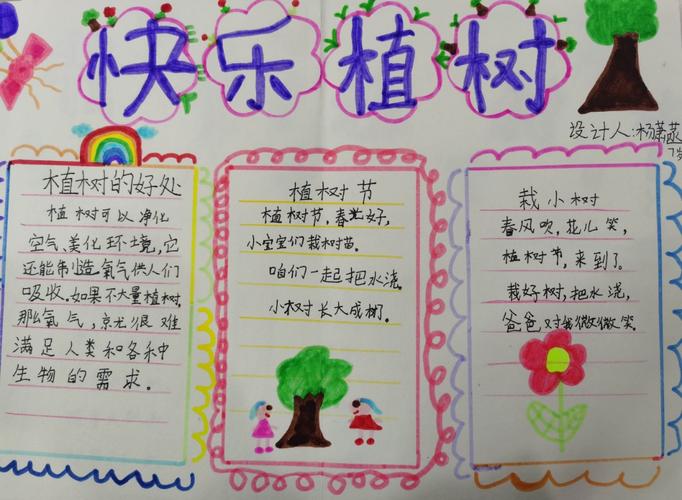 快乐植树
设计人:杨萧蕊
7岁
植树的好处
植树可以净化
空气、美化环境,它
还能制造氧气供人们
吸收.如果不大量植树.
那么氧气,就很难
满足人类和各种
生物的需求。
植树节
植树节,春光好,
小宝宝们栽树苗。
咱们一起把水浇。
小树长大成树。
栽小树
春风吹,花儿笑,
植树节,来到了。
栽好树,把水浇,
爸爸对我微微笑.